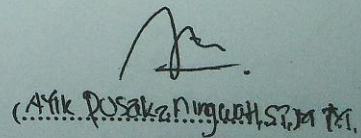 (Ayik Pusakaningwati, S.